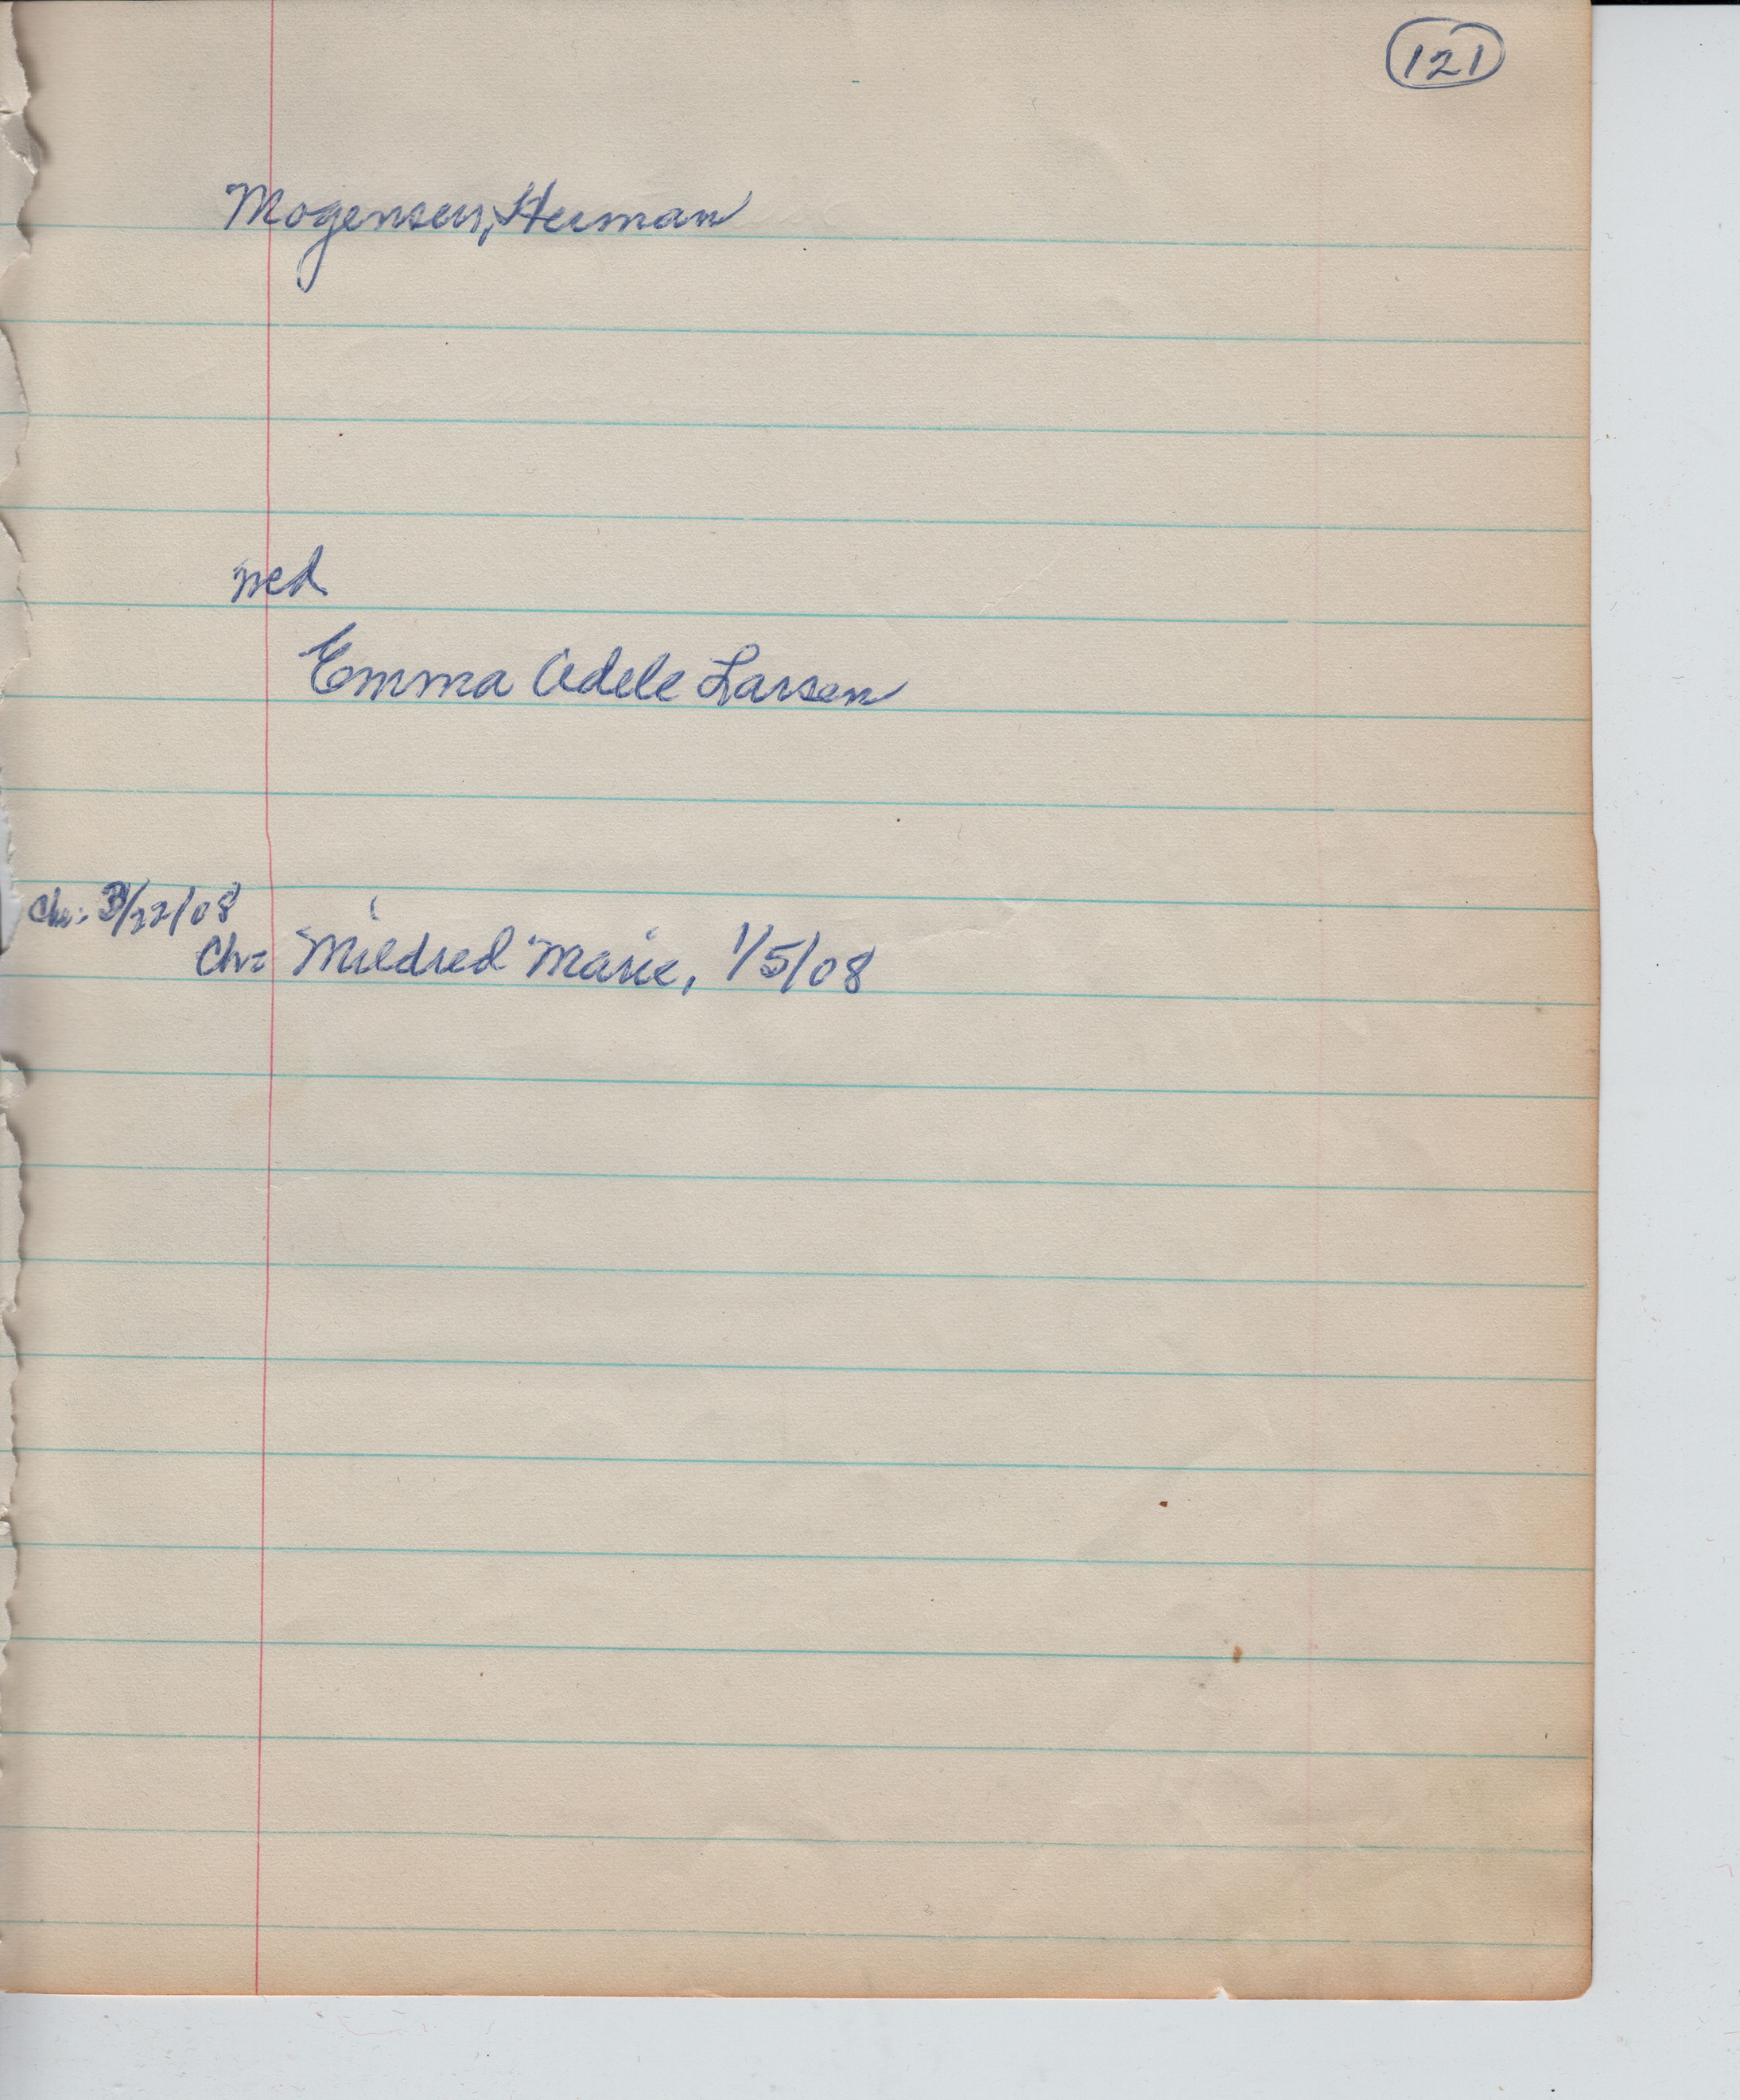 121
Mogensen, Herman
med
Emma Adele Larsen
Chr: 3/22/08
Ch: Mildred Marie, 1/5/08